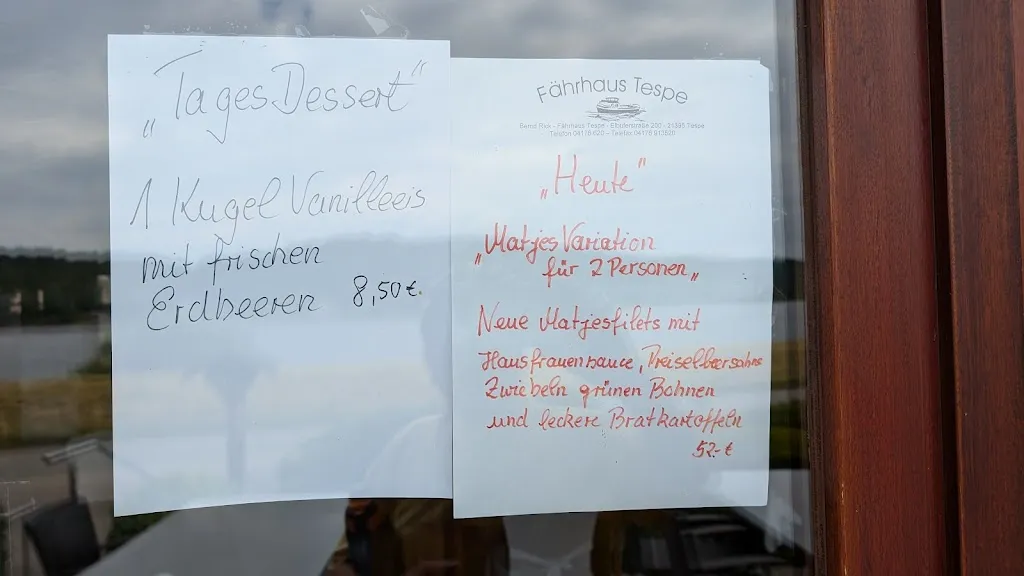 „TagesDessert“
1 Kugel Vanilleeis
mit frischen
Erdbeeren 8,50€.
Fährhaus Tespe
Fährhaus Tespe - Elbuferstraße 200 - 21395 Tespe
Telefon 04176
„Heute“
„Matjes Variation
für 2 Personen„
Neue Matjesfilets mit
Hausfrauensauce, Preiselbeersahne
Zwiebeln grünen Bohnen
und leckere Bratkartoffeln
52,- €